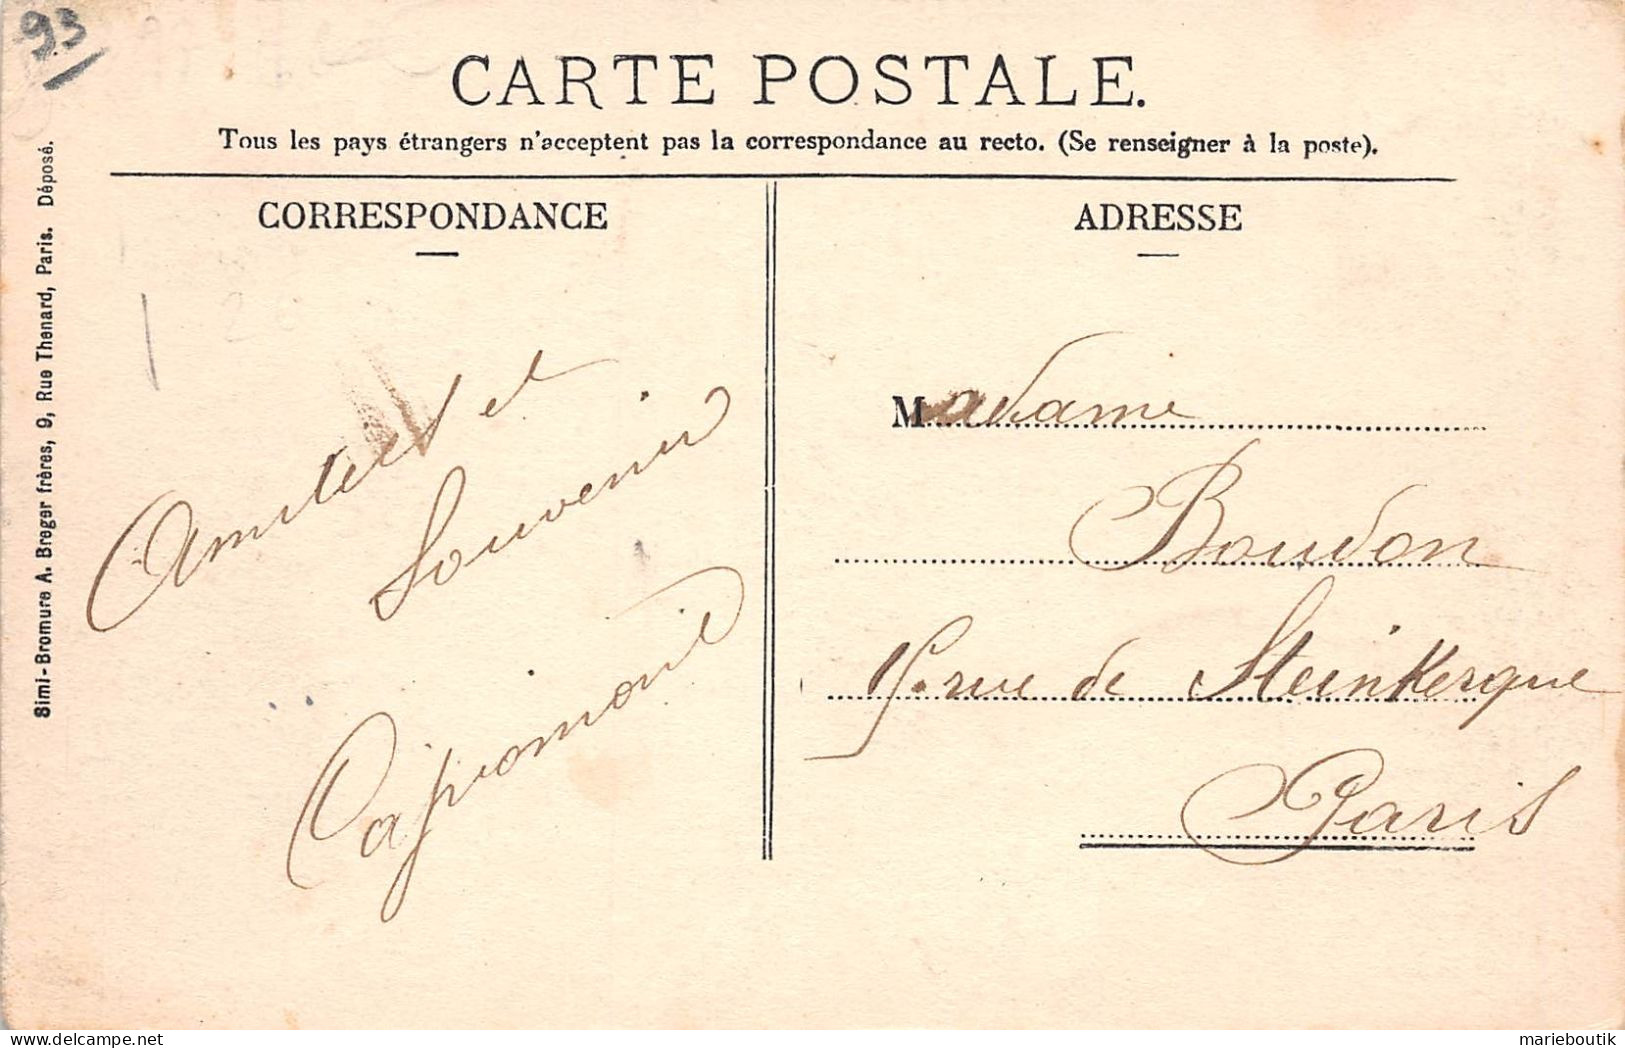 93
CARTE POSTALE.
Tous les pays étrangers n'acceptent pas la correspondance au recto. (Se renseigner à la poste).
Simi-Bromure A. Breger frères, 9, Rue Thenard, Paris. Déposé.
CORRESPONDANCE
et
Souvenir
ADRESSE
Madame
Boudon
15. rue de Steinkerque
Paris
marieboutik